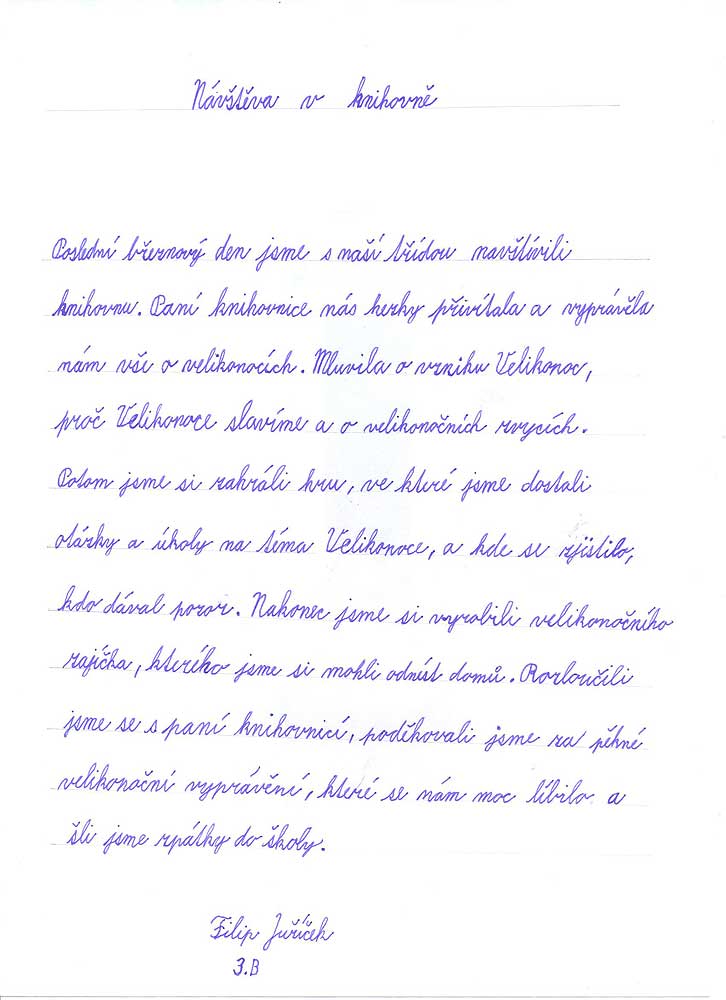 Návštěva v knihovně
Poslední březnový den jsme s naší třídou navštívili
knihovnu. Paní knihovnice nás hezky přivítala a vyprávěla
nám vše o velikonocích. Mluvila o vzniku Velikonoc,
proč Velikonoce slavíme a o velikonočních zvycích.
Potom jsme si zahráli hru, ve které jsme dostali
otázky a úkoly na téma Velikonoce, a kde se zjistilo,
kdo dával pozor. Nakonec jsme si vyrobili velikonočního
zajíčka, kterého jsme si mohli odnést domů. Rozloučili
jsme se s paní knihovnicí, poděkovali jsme za pěkné
velikonoční vyprávění, které se nám moc líbilo a
šli jsme zpátky do školy.
Filip Juříček
3.B